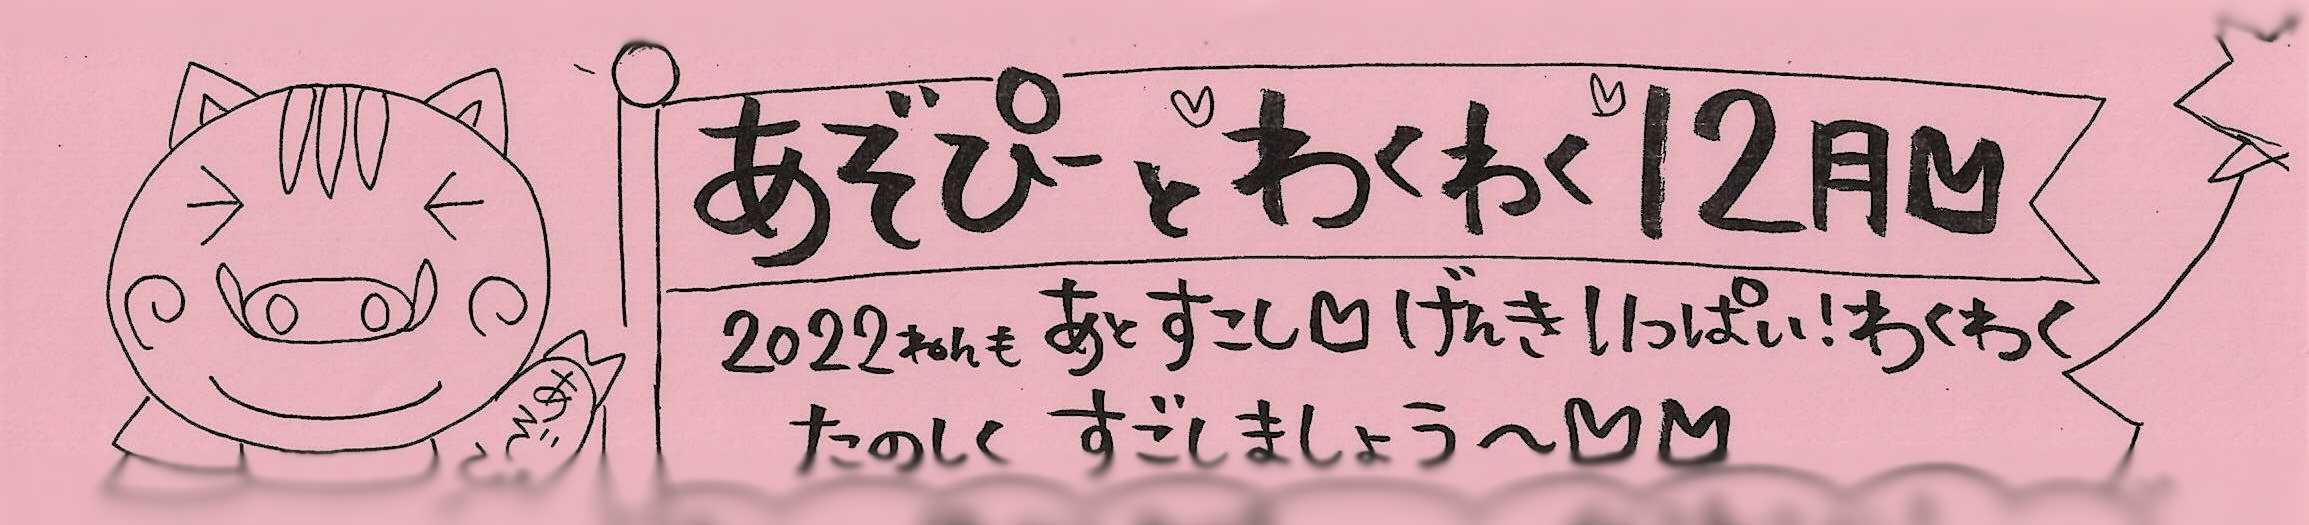 あそぴーとわくわく12月
2022ねんもあとすこし げんきいっぱい!わくわく
たのしく すごしましょう〜